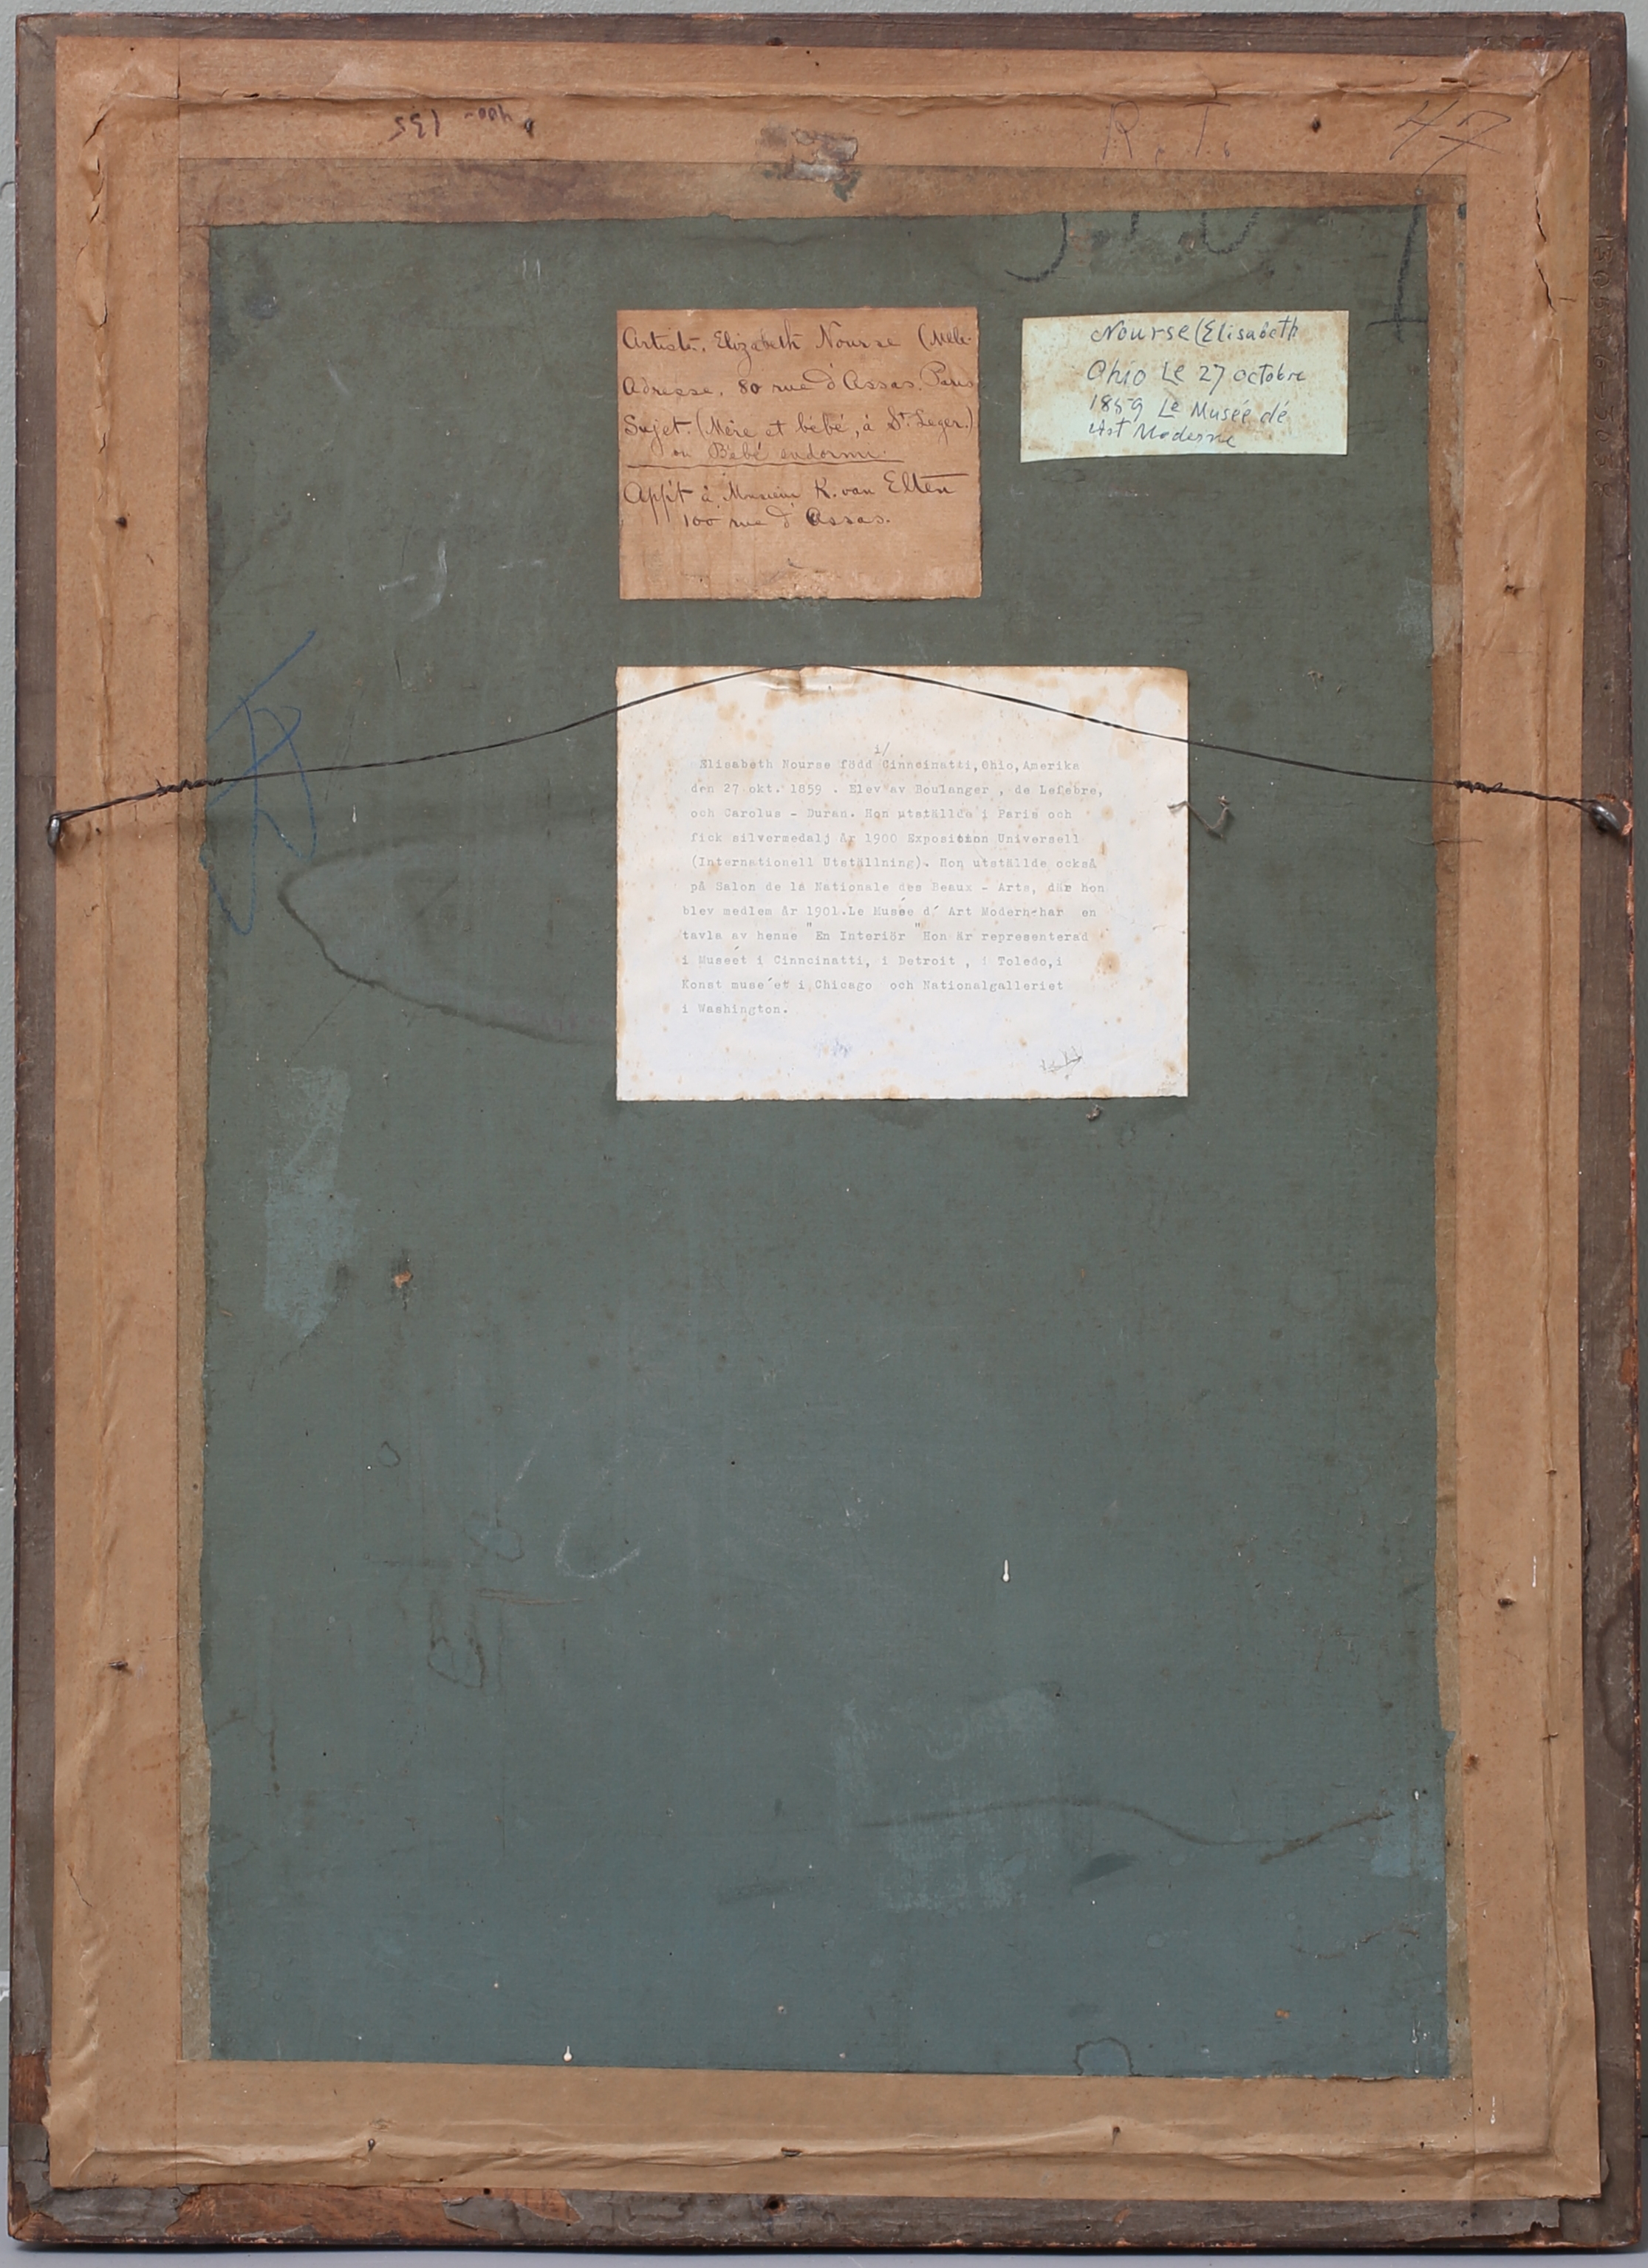 400- 135
R. T. 47
Artiste. Elizabeth Nourse (Melle.
Adresse. 80 rue d'Assas. Paris
Sujet. (Mère et bébé, à St. Leger.)
ou Bébé endormi.
App't à Monsieur K. van Elten
100 rue d'Assas.
Nourse (Elisabeth
Ohio Le 27 octobre
1859 Le Musée dé
Art Moderne
i/
Elisabeth Nourse född Cinncinatti, Ohio, Amerika
den 27 okt. 1859 . Elev av Boulanger , de Lefebre,
och Carolus - Duran. Hon utställde i Paris och
fick silvermedalj År 1900 Exposition Universell
(Internationell Utställning). Hon utställde också
på Salon de lá Nationale des Beaux - Arts, där hon
blev medlem År 1901.Le Musée d´ Art Modern-har en
tavla av henne "En Interiör "Hon är representerad
i Muséet i Cinncinatti, i Detroit , i Toledo,i
Konst muse´et i Chicago och Nationalgalleriet
i Washington.